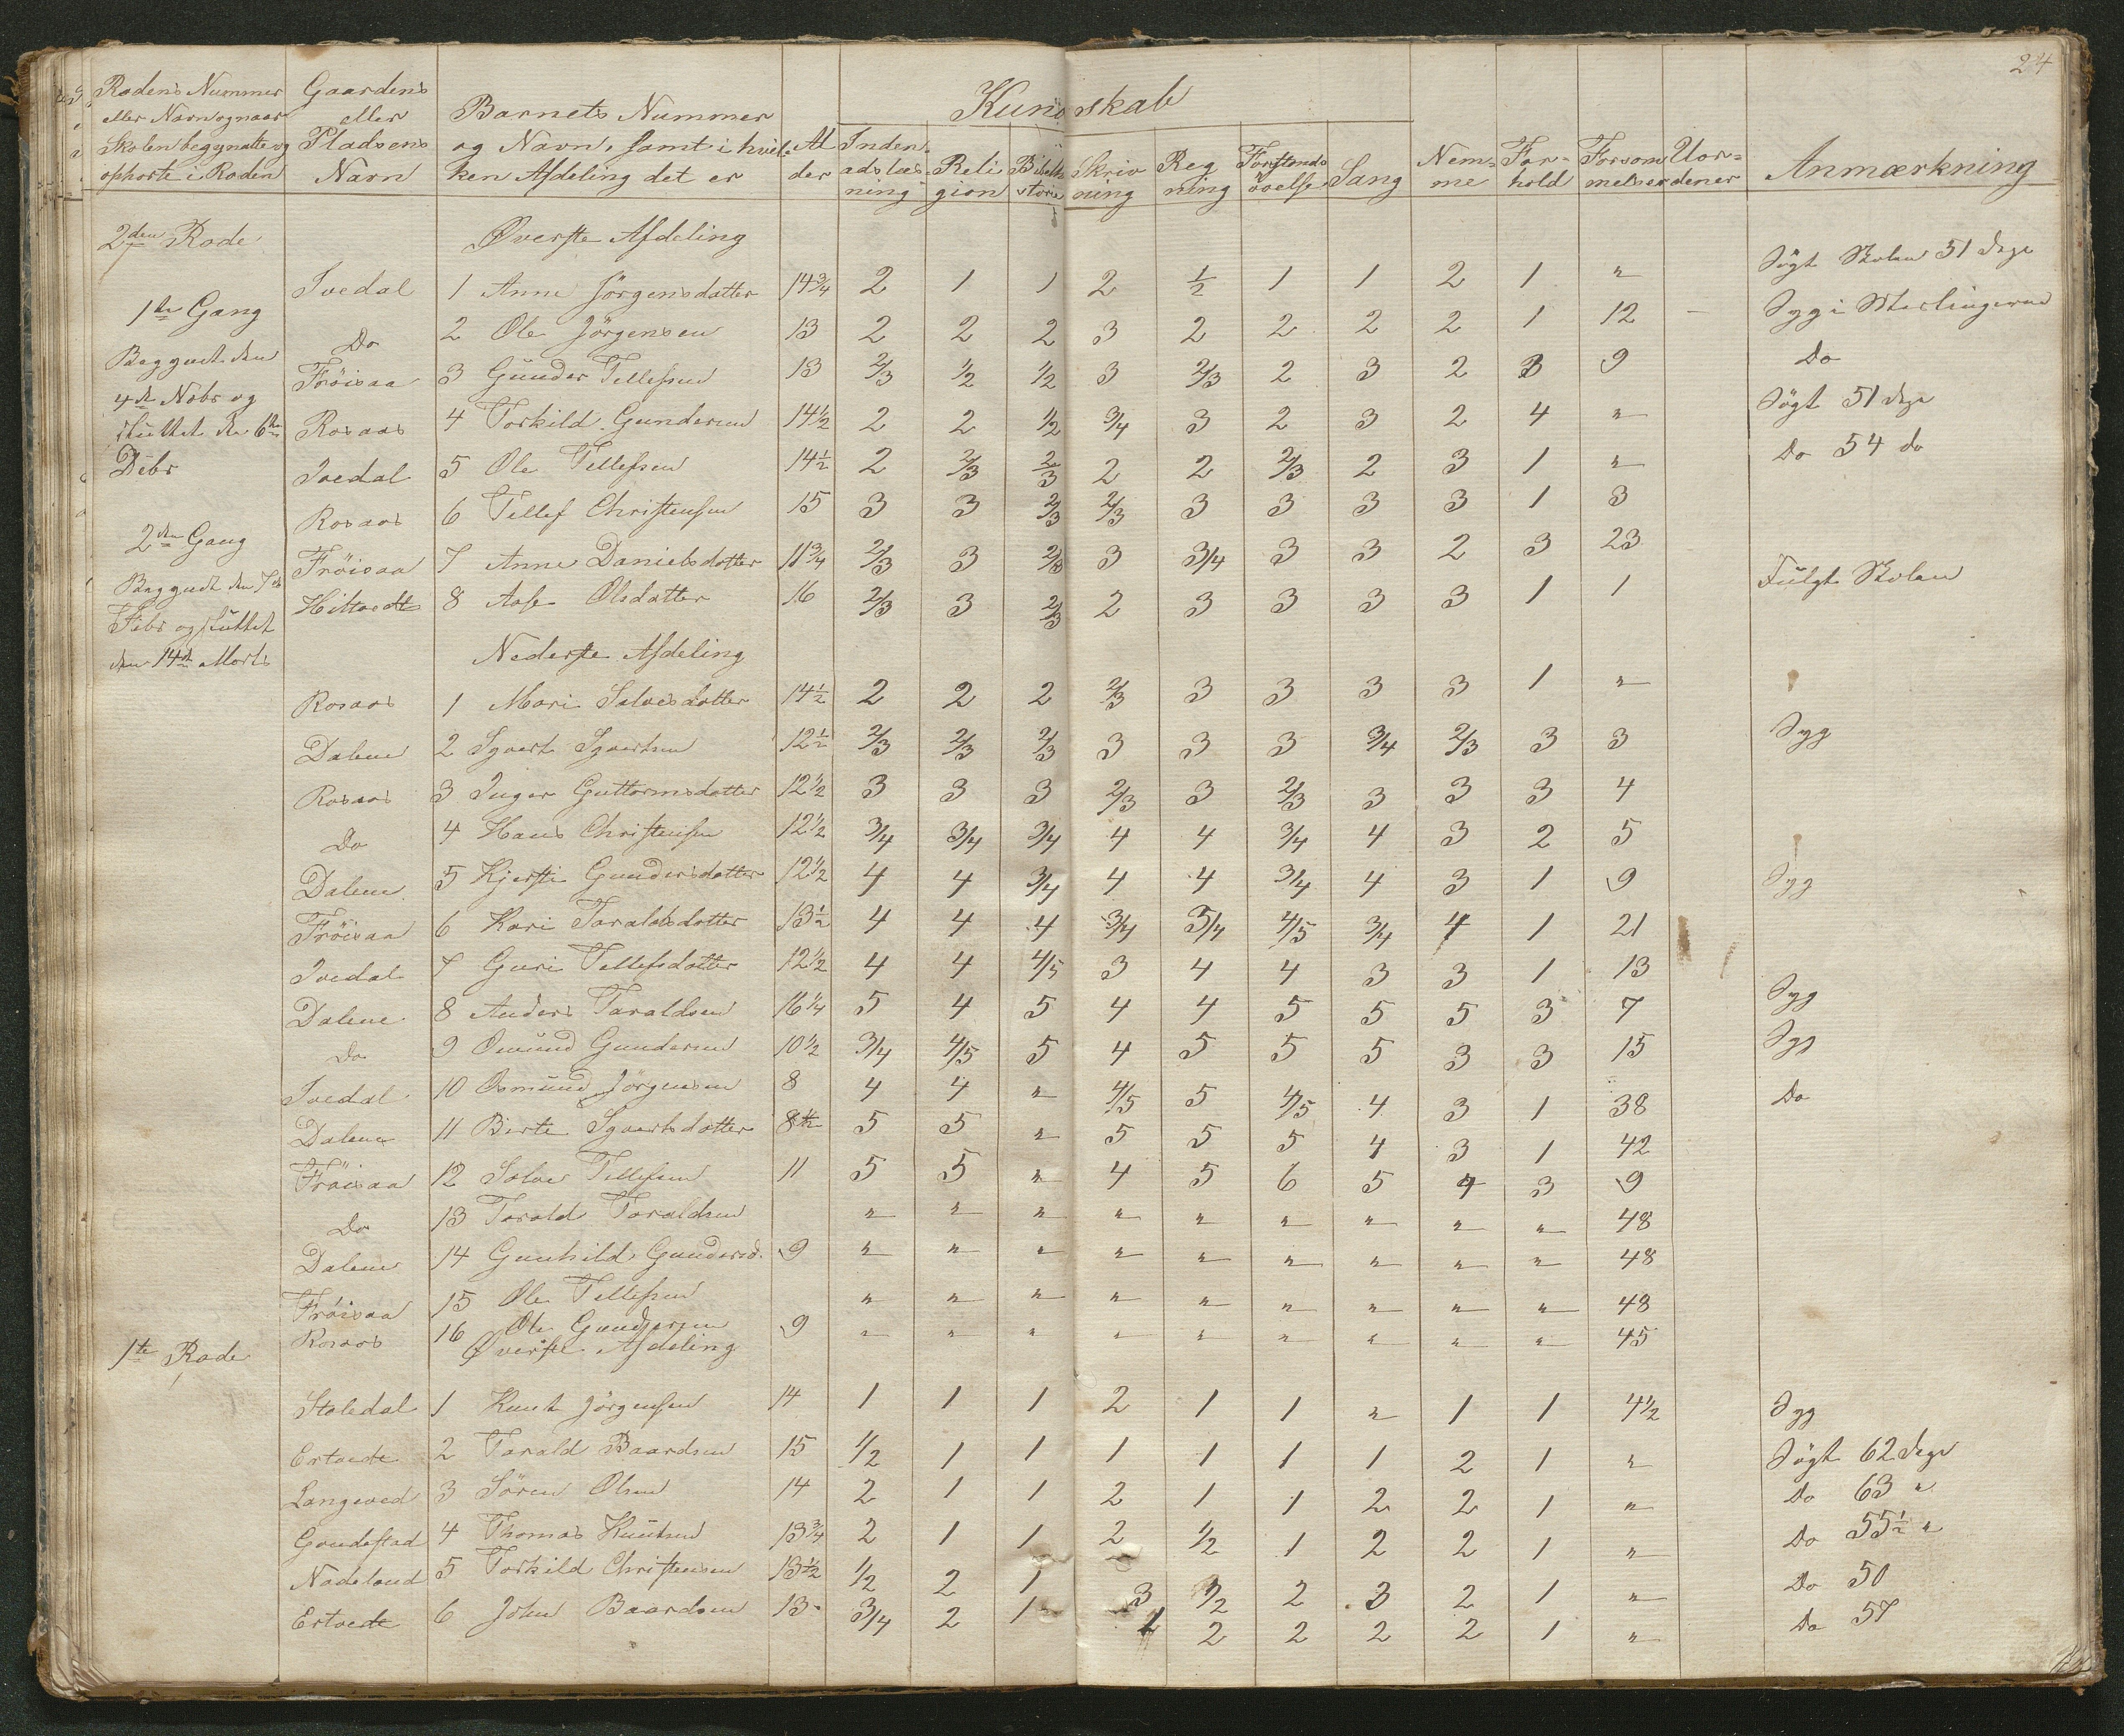 24
Rodens Nummer eller Navn og naar Skolen begyndte og ophorte i Roden | Gaardens eller Pladsens Navn | Barnets Nummer og Navn, samt i hvilken Afdeling det er | Alder | Kundskab | Nemme | Forhold | Forsommelser | Anmærkning
Indenadslæsning | Religion | Skrivning | Regning | Sang
2den Rode | Øverste Afdeling
Ivedal 1 Anne Jörgensdatter 14¾ 2 1 1 2 ½ 1 1 2 1 " Sögt Skolen 51 dage
1ste Gang
Do 2 Ole Jörgensen 13 2 2 2 3 2 2 2 2 1 12 - Syg i Meslingerne
Begyndt den
Fröisaa 3 Gunder Tellefsen 13 2/3 1/2 1/2 3 2/3 2 3 2 3 9 Do
4de Nobr og
sluttet den 6te
Rosaas 4 Torkild Gundersen 14½ 2 2 1/2 3/4 3 2 3 2 4 " Sögt 51 dage
Debr
Ivedal 5 Ole Tellefsen 14½ 2 2/3 2/3 2 2 2/3 2 3 1 " Do 54 do
Rosaas 6 Tellef Christensen 15 3 3 2/3 2/3 3 3 3 3 1 3
2den Gang
Fröisaa 7 Anne Danielsdatter 11¾ 2/3 3 2/3 3 3/4 3 3 2 3 23
Begyndt den 7de
Hiltvedt 8 Aase Olsdatter 16 2/3 3 2/3 2 3 3 3 3 1 1 Fulgt Skolen
Febr og sluttet
den 14de Marts
Nederste Afdeling
Rosaas 1 Mari Salvesdatter 14½ 2 2 2 2/3 3 3 3 3 1 "
Dalene 2 Syvert Syvertsen 12½ 2/3 2/3 2/3 3 3 3 3/4 2/3 3 3 Syg
Rosaas 3 Inger Guttormsdatter 12½ 3 3 3 2/3 3 2/3 3 3 3 4
Do 4 Hans Christensen 12½ 3/4 3/4 3/4 4 4 3/4 4 3 2 5
Dalene 5 Kjersti Gundersdatter 12½ 4 4 3/4 4 4 3/4 4 3 1 9 Syg
Fröisaa 6 Kari Taraldsdatter 13½ 4 4 4 3/4 3/4 4/5 3/4 4 1 21
Ivedal 7 Guri Tellefsdatter 12½ 4 4 4/5 3 4 4 3 3 1 13
Dalene 8 Anders Taraldsen 16¼ 5 4 5 4 4 5 5 5 3 7 Syg
Do 9 Omund Gundersen 10½ 3/4 4/5 5 4 5 5 5 3 3 15 Syg
Ivedal 10 Osmund Jörgensen 8 4 4 " 4/5 5 4/5 4 3 1 38 Do
Dalene 11 Birte Syvertsdatter 8½ 5 5 " 5 5 5 4 3 1 42
Fröisaa 12 Salve Tellefsen 11 5 5 " 4 5 6 5 4 3 9
Do 13 Tarald Taraldsen " " " " " " " " " 48
Dalene 14 Gunhild Gundersd. 9 " " " " " " " " " 48
Fröisaa 15 Ole Tellefsen " " " " " " " " " 48
Rosaas 16 Ole Gundersen 9 " " " " " " " " " 45
1te Rode | Øverste Afdeling
Staledal 1 Knut Jörgensen 14 1 1 1 2 1 1 " 1 1 4½ Syg
Ertvedt 2 Tarald Baardsen 15 1/2 1 1 1 1 1 1 2 1 " Sögt 62 dage
Langeved 3 Sören Olsen 14 2 1 1 2 1 1 2 2 1 " Do 63 "
Goudestad 4 Thomas Knutsen 13¾ 2 1 1 2 1/2 1 2 2 1 " Do 55½ "
Nadeland 5 Torkild Christensen 13½ 1/2 2 1 3 1/2 2 3 2 1 " Do 50
Ertvedt 6 John Baardsen 13 3/4 2 1 2 2 2 2 1 " Do 57